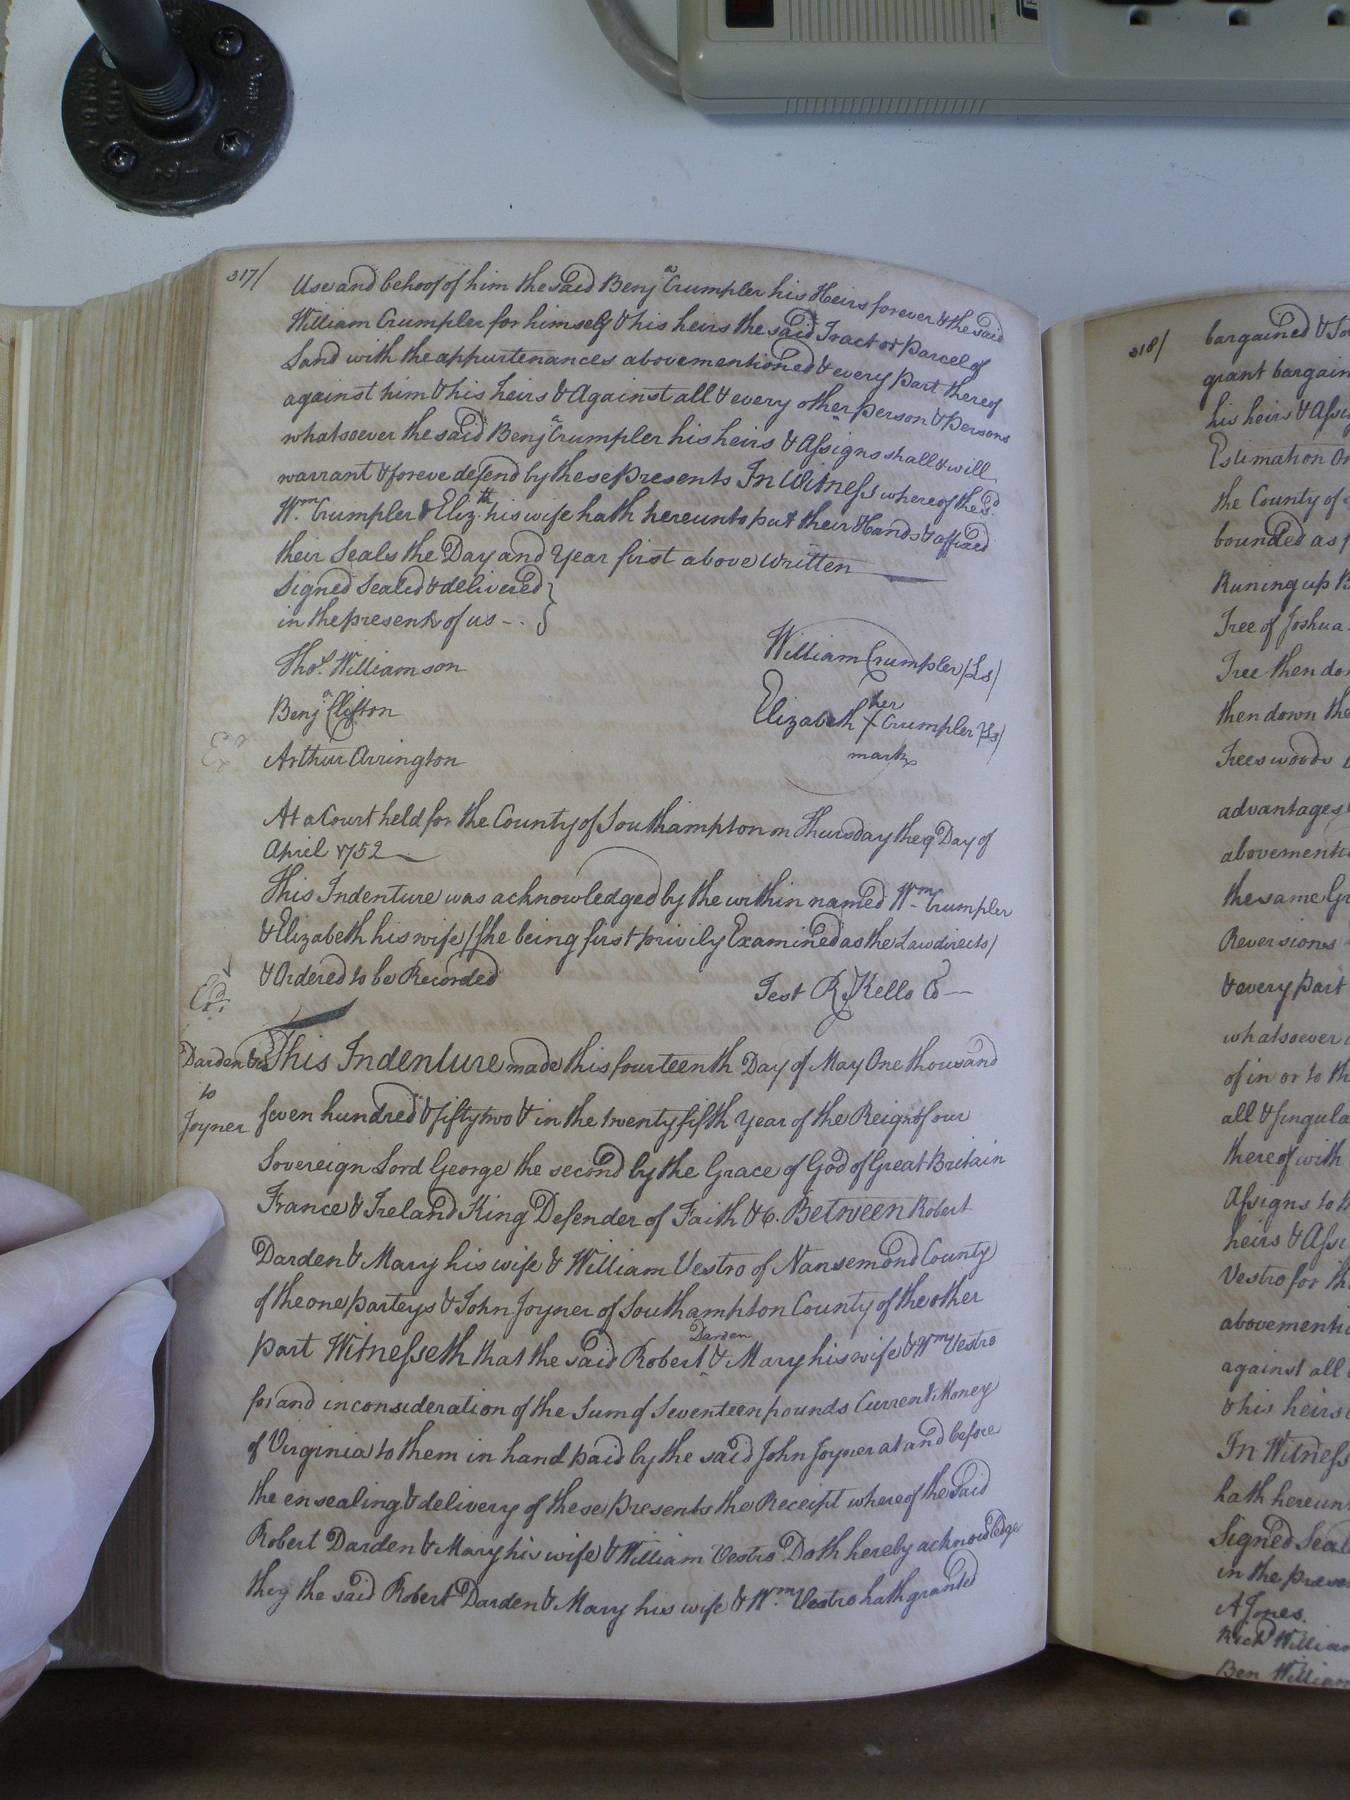 317/
Use and behoof of him the said Benj.a Crumpler his Heirs forever & the said
William Crumpler for himself & his heirs the said Tract or Parcel of
Land with the appurtenances abovementioned & every part thereof
against him & his heirs & Against all & every other person & Persons
whatsoever the said Benj.a Crumpler his heirs & Assigns shall & will
warrant & foreve defend by these Presents In Witness whereof the s.d
W.m Crumpler & Eliz.th his wife hath hereunto put their Hands & affixed
their Seals the Day and Year first above Written
Signed Sealed & delivered
in the presents of us -..
Tho.s Williamson
William Crumpler (Ls)
Benj.a Clifton
her
Elizabeth X Crumpler (Ls)
mark
Arthur Arrington
At a Court held for the County of Southampton on Thursday the 9 Day of
April 1752
This Indenture was acknowledged by the within named W.m Crumpler
& Elizabeth his wife (she being first privily Examined as the Law directs)
& Ordered to be Recorded
Test R. Kello
Darden &c
to
Joyner
This Indenture made this fourteenth Day of May One thousand
seven hundred & fifty two & in the twenty fifth Year of the Reign of our
Sovereign Lord George the second by the Grace of God of Great Britain
France & Ireland King Defender of Faith &c. Between Robert
Darden & Mary his wife & William Vestro of Nansemond County
of the one parteys & John Joyner of Southampton County of the other
Darden
part Witnesseth that the said Robert & Mary his wife & W.m Vestro
for and inconsideration of the Sum of Seventeen pounds Current Money
of Virginia to them in hand paid by the said John Joyner at and before
the ensealing & delivery of these Presents the Receipt whereof the said
Robert Darden & Mary his wife & William Vestro Doth hereby acknowledge
they the said Robert Darden & Mary his wife & W.m Vestro hath granted
318/
bargained &
grant bargain
his heirs &
Estimation
the County of
bounded as
Runing up
Tree of Joshua
Tree then
then down the
Trees woods
advantages
the same
Reversions
& every part
whatsoever
of in or to
all &
thereof with
Assigns to
heirs &
Vestro for
against all
& his heirs
In Witness
hath
Signed
in the
A Jones
Rich.d
Ben